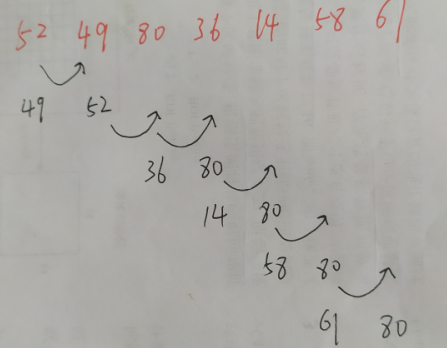 52 49 80 36 14 58 61
49 52
36 80
14 80
58 80
61 80